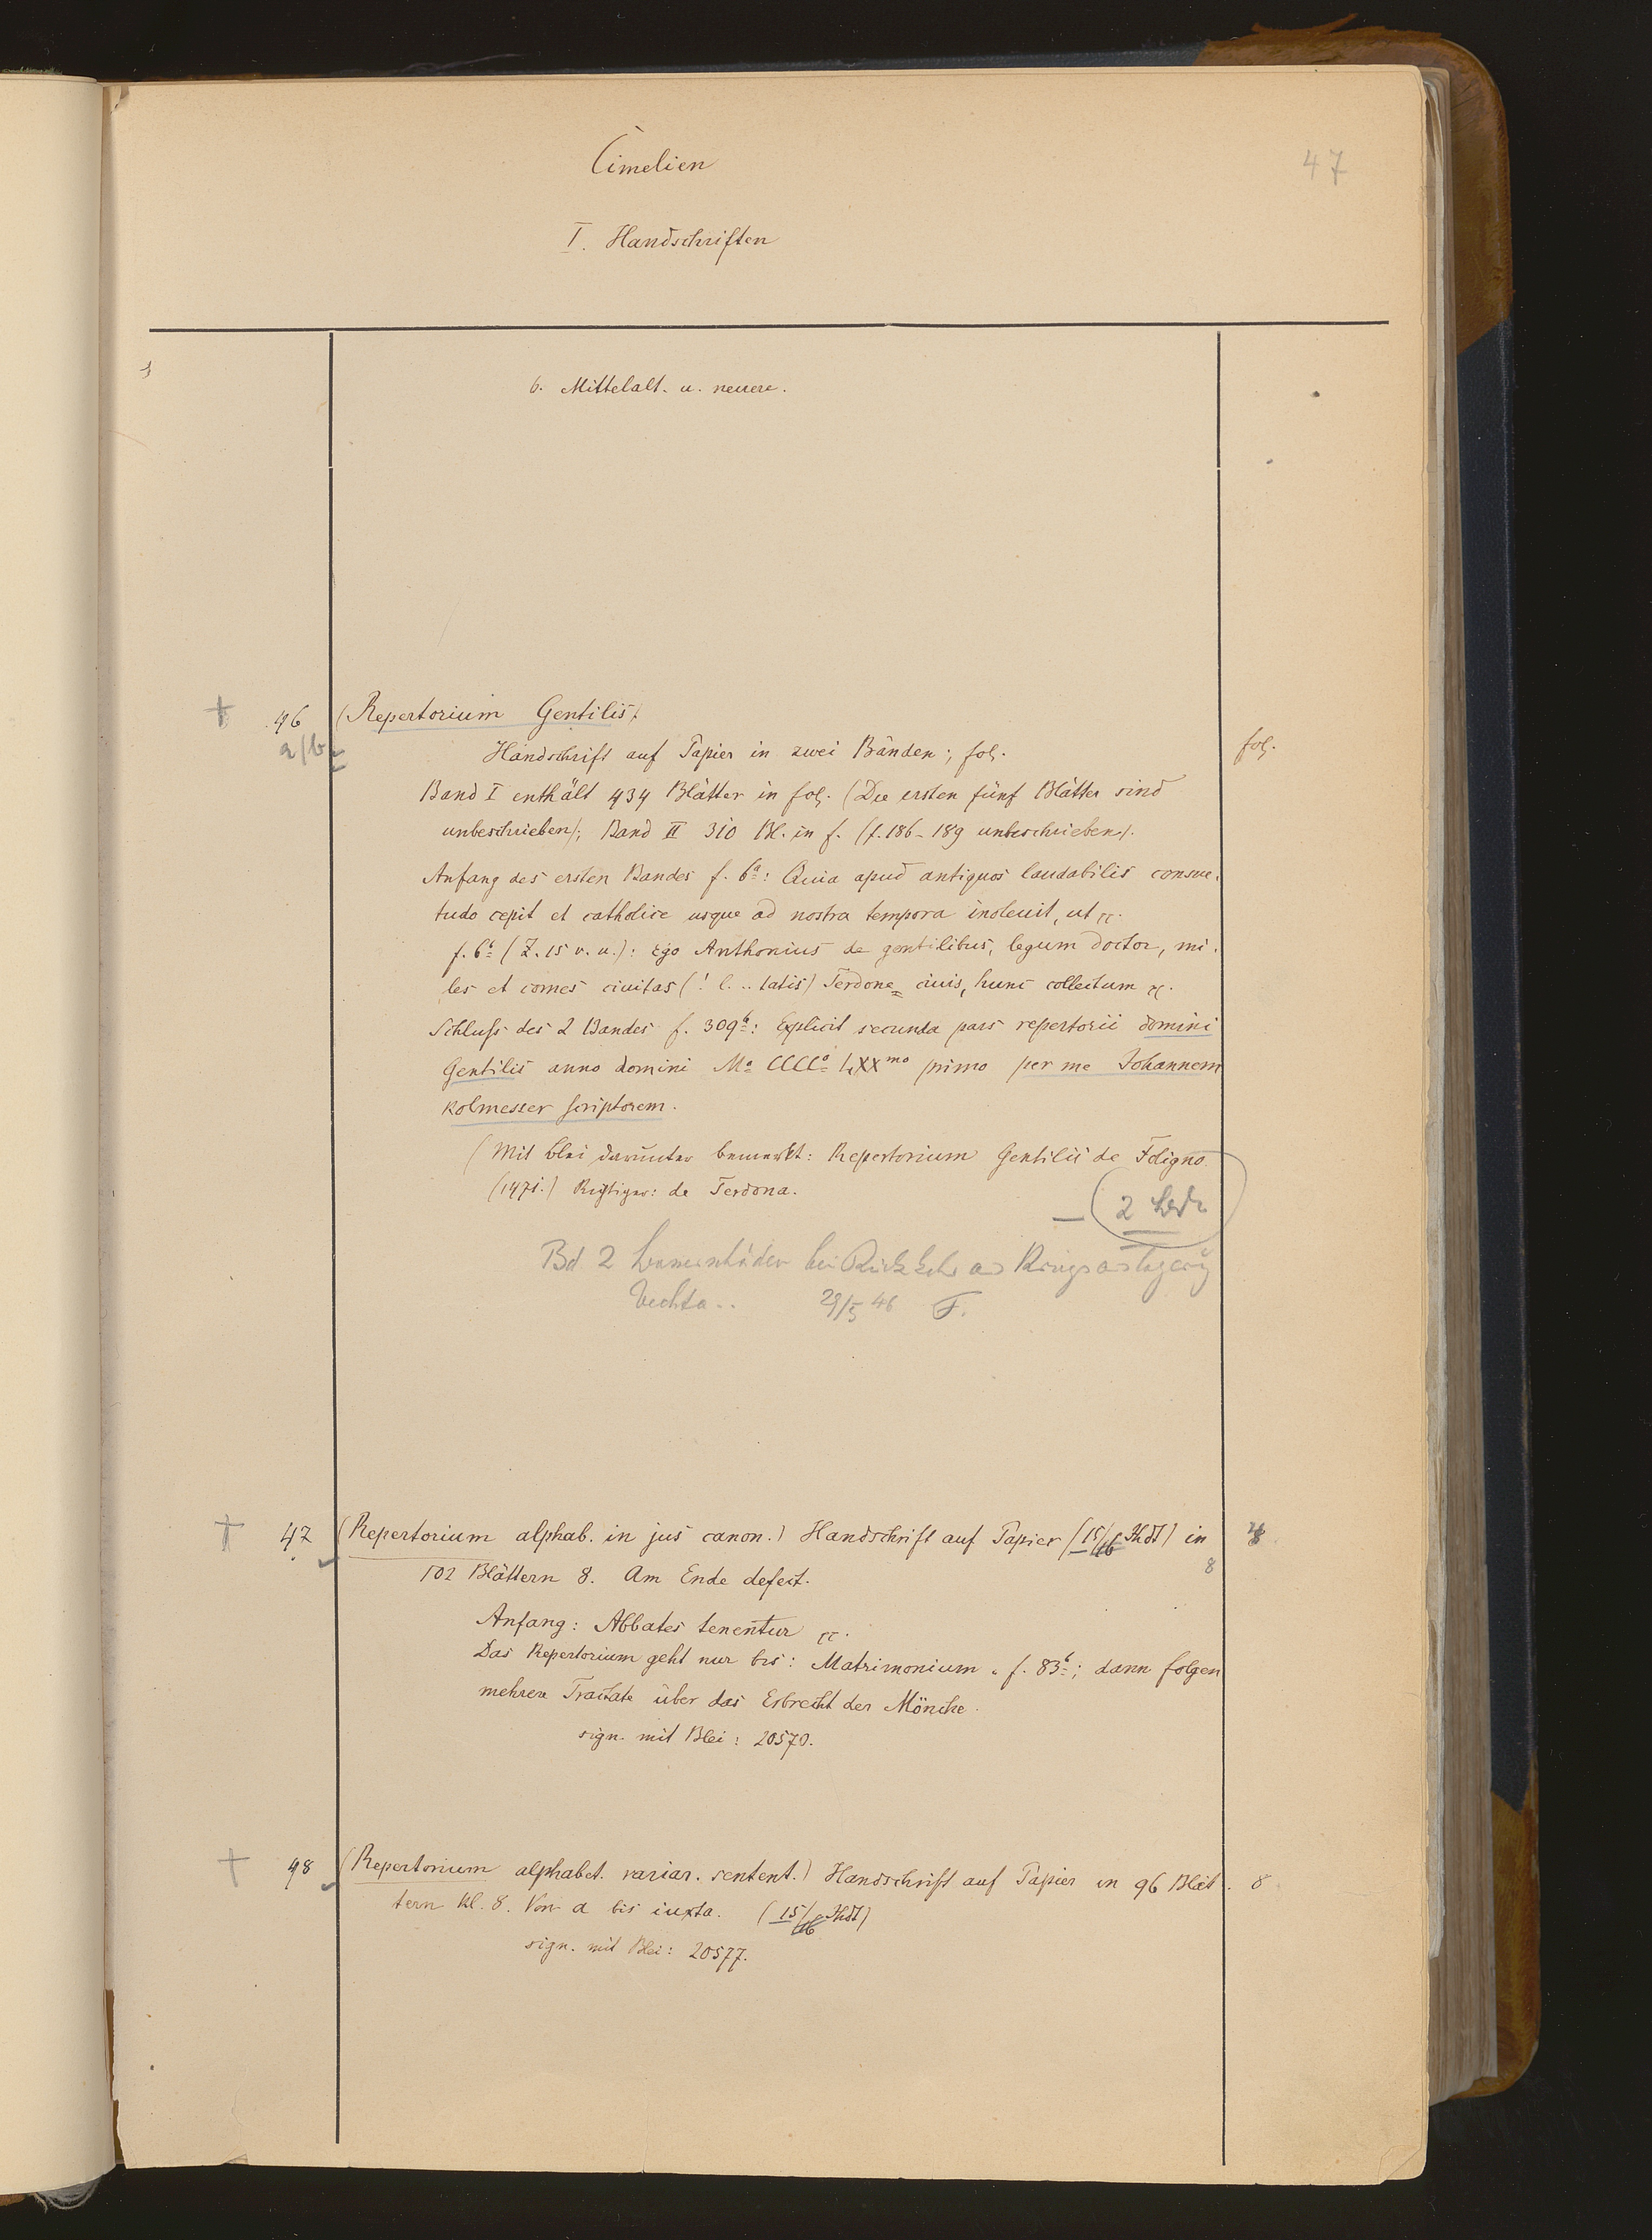 Cimelien
47
I. Handschriften
b. Mittelalt. u. neuere.
† 46 (Repertorium Gentilis)
a/b
Handschrift auf Papier in zwei Bänden; fol. fol.
Band I enthält 434 Blätter in fol. (Die ersten fünf Blätter sind
unbeschrieben); Band II 310 Bl. in f. (f. 186-189 unbeschrieben).
Anfang des ersten Bandes f. 6a: Quia apud antiquos laudabilis consue-
tudo cepit et catholice usque ad nostra tempora inoleuit, ut rc.
f. 6a (Z. 15 v. u.): Ego Anthonius de gentilibus, legum doctor, mi-
les et comes ciuitas (! l. .. tatis) Terdone ciuis, hunc collectum rc.
Schluss des 2 Bandes f. 309b: Explicit secunda pars repertorii domini
Gentilis anno domini Mo CCCCo LXXmo primo per me Johannem
Kolmesser scriptorem.
(Mit Blei darunter bemerkt: Repertorium Gentilis de Foligno
(1471.) Richtiger: de Terdona.
— (2 Bde)
Bd. 2 bei Rückkehr aus
Vechta.. 29/5 46 F.
† 47 (Repertorium alphab. in jus canon.) Handschrift auf Papier (15/16 Jhdt) in 8
102 Blättern 8. Am Ende defect. 8
Anfang: Abbates tenentur rc.
Das Repertorium geht nur bis: Matrimonium. f. 83b; dann folgen
mehrere Tractate über das Erbrecht der Mönche.
sign. mit Blei: 20570.
† 48 (Repertorium alphabet. variar. sentent.) Handschrift auf Papier in 96 Blät- 8
tern kl. 8. Von a bis iuxta. (15/16 Jhdt)
sign. mit Blei: 20577.